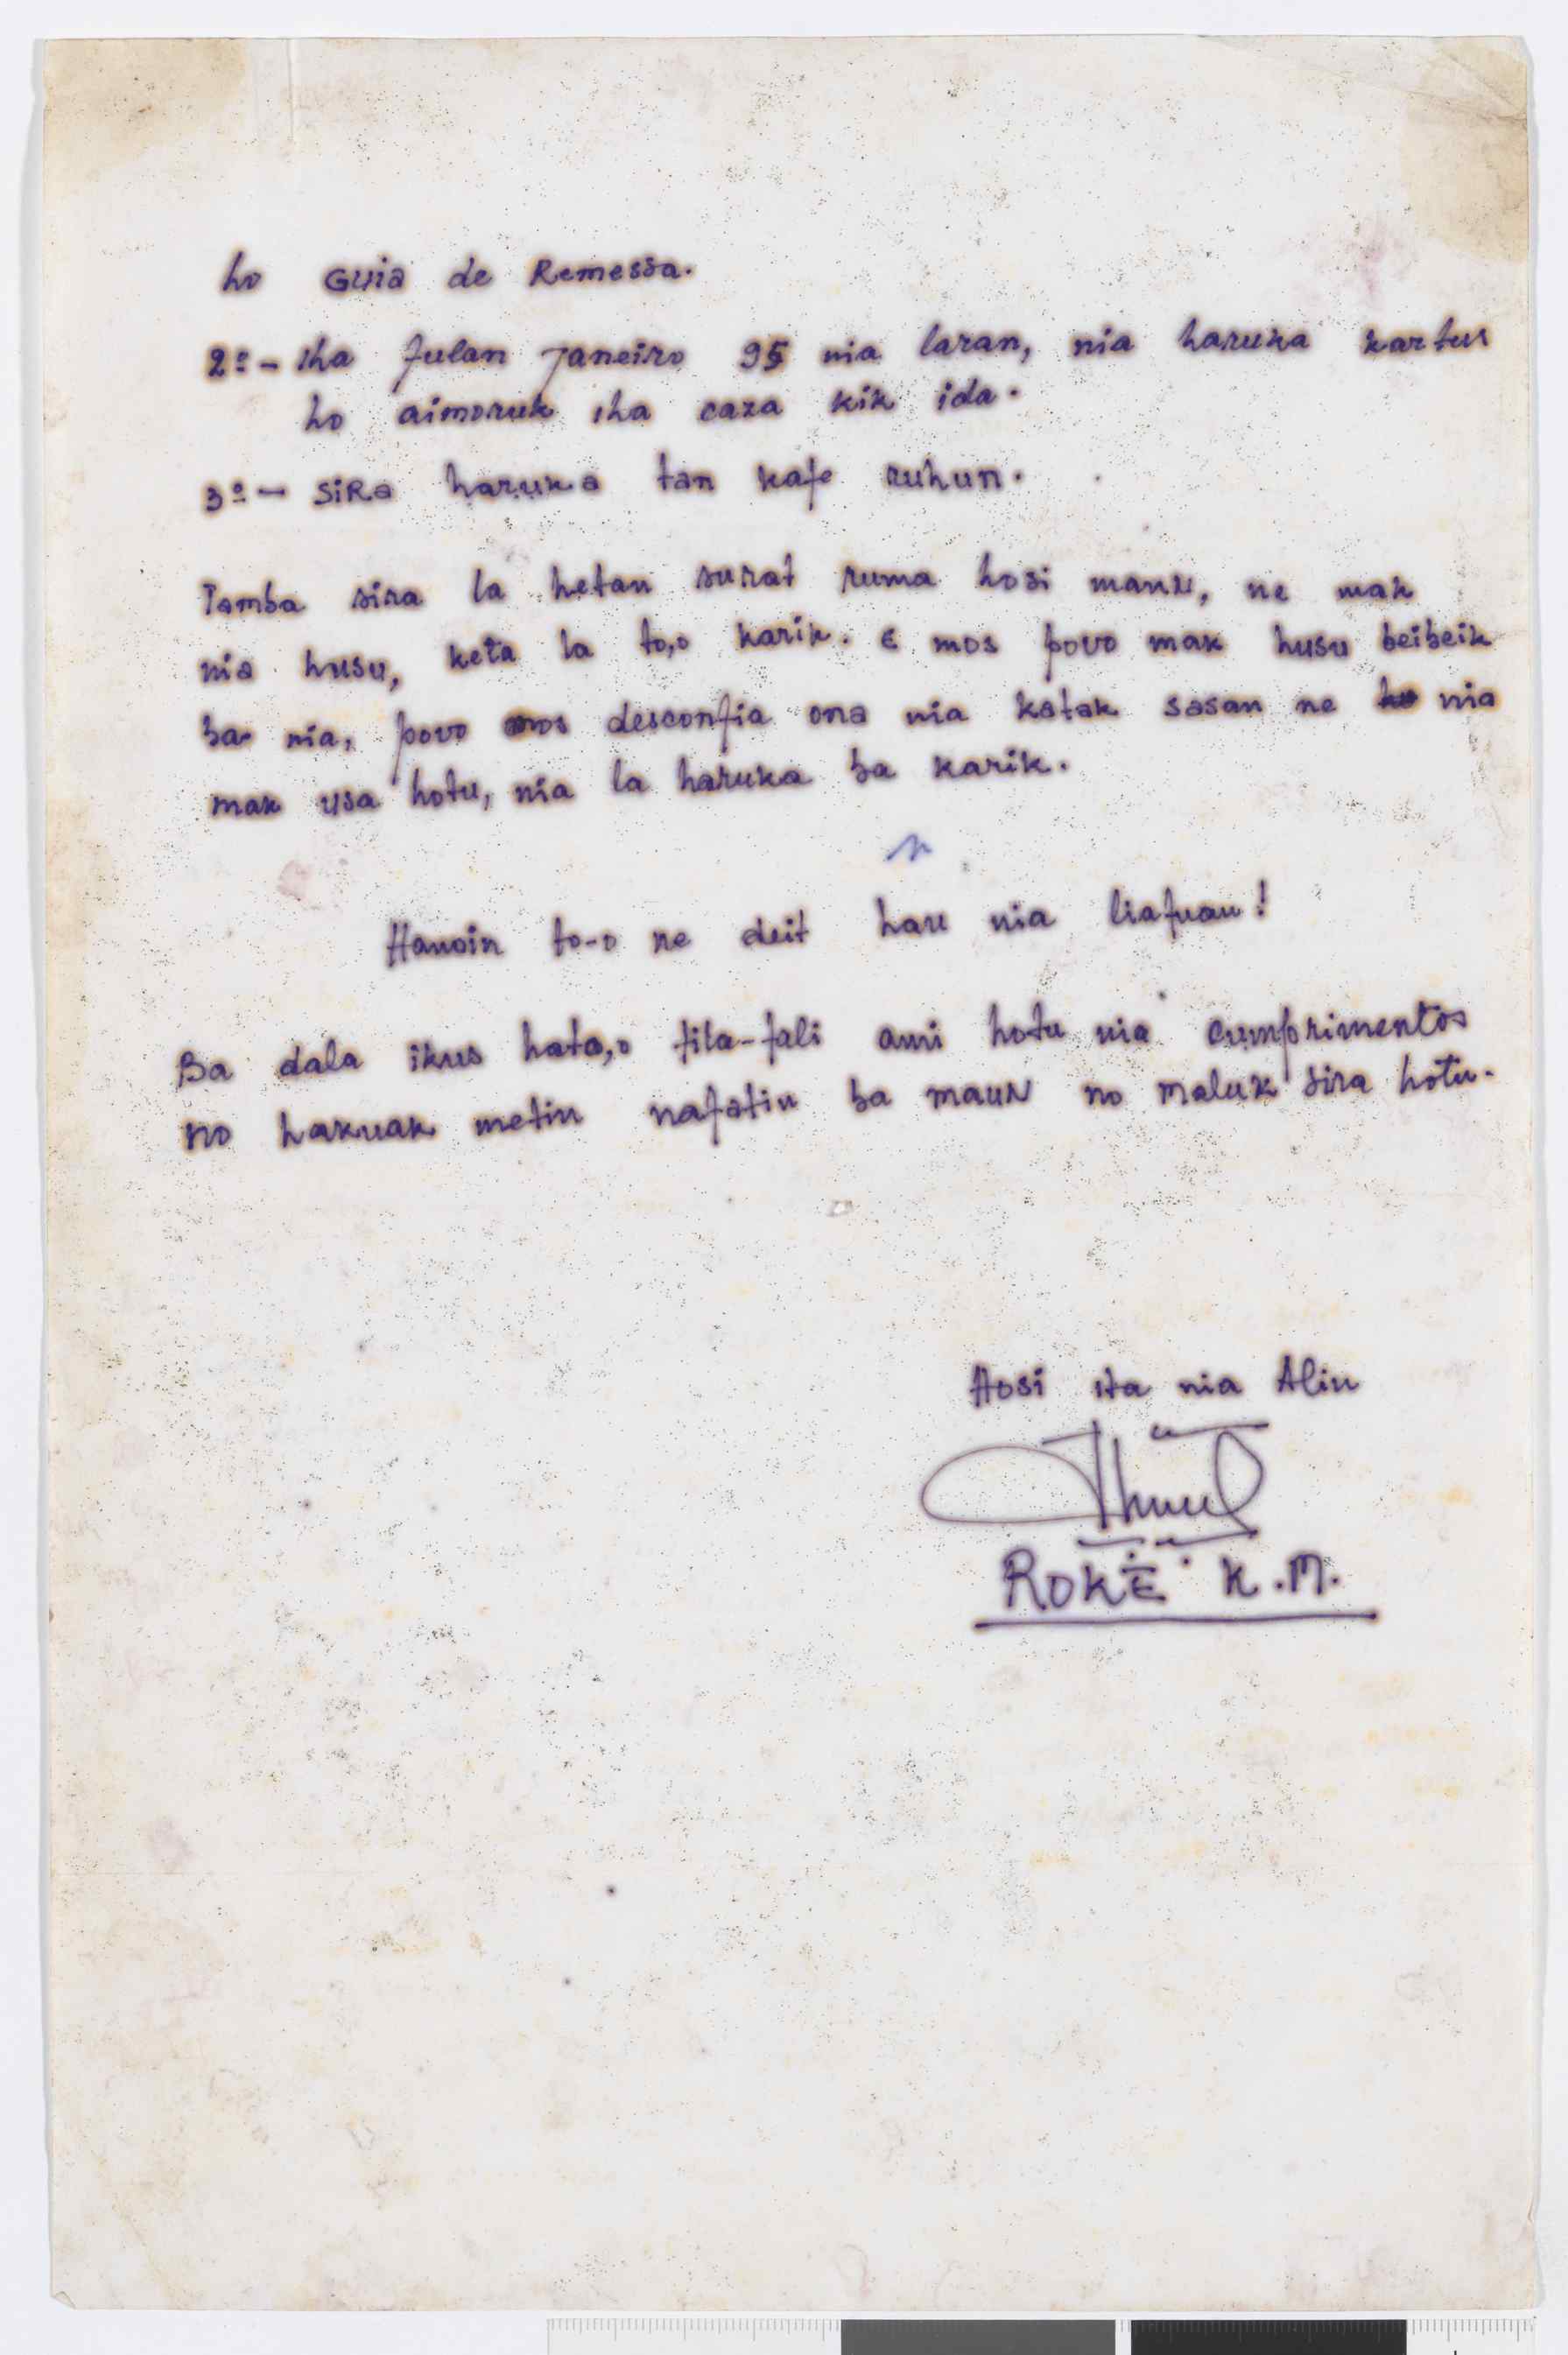 ho Guia de Remessa.
2º - iha fulan Janeiro 95 nia laran, nia haruka kartus
ho aimoruk iha caza kik ida.
3º - sira haruka tan kafe ruhun.
Tamba sira la hetan surat ruma hosi maun, ne mak
nia husu, keta la to,o karik. E mos povo mak husu beibeik
ba nia, povo mos desconfia ona nia katak sasan ne nia
mak usa hotu, nia la haruka ba karik.
Hanoin to-o ne deit hau nia liafuan!
Ba dala ikus hato,o fila-fali ami hotu nia cumprimentos
no hakuak metin nafatin ba maun no maluk sira hotu.
Hosi ita nia Alin
ROKÉ K.M.